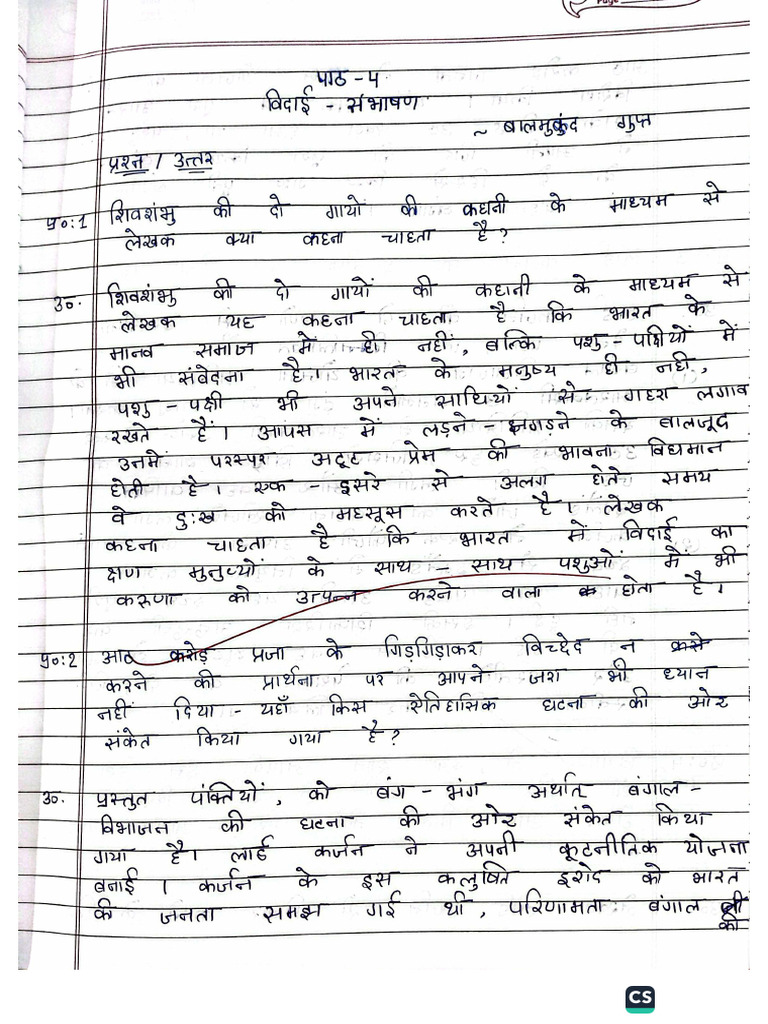 Page
पाठ - 4
विदाई - संभाषण
~ बालमुकुंद गुप्त
प्रश्न / उत्तर
प्र०:1 शिवशंभु की दो गायों की कहनी के माध्यम से
लेखक क्या कहना चाहता है?
उ०. शिवशंभु की दो गायों की कहानी के माध्यम से
लेखक यह कहना चाहता है कि भारत के
मानव समाज में ही नहीं, बल्कि पशु - पक्षियों में
भी संवेदना है। भारत के मनुष्य ही नही,
पशु - पक्षी भी अपने साथियों से गहरा लगाव
रखते हैं। आपस में लड़ने - झगड़ने के बालजूद
उनमें परस्पर अटूट प्रेम की भावना विद्यमान
होती है। एक - दूसरे से अलग होते समय
वे दु:ख को महसूस करते है। लेखक
कहना चाहता है कि भारत में विदाई का
क्षण मुनुष्यों के साथ - साथ पशुओं में भी
करुणा को उत्पन्न करने वाला होता है।
प्र०:2 आठ करोड़ प्रजा के गिड़गिड़ाकर विच्छेद न
करने की प्रार्थना पर आपने जरा भी ध्यान
नहीं दिया - यहाँ किस ऐतिहासिक घटना की ओर
संकेत किया गया है?
उ०. प्रस्तुत पंक्तियों, को बंग - भंग अर्थात् बंगाल -
विभाजन की घटना की ओर संकेत किया
गया है। लार्ड कर्जन ने अपनी कूटनीतिक योजना
बनाई । कर्जन के इस कलुषित इरादे को भारत
की जनता समझ गई थी, परिणामता बंगाल
को
CS